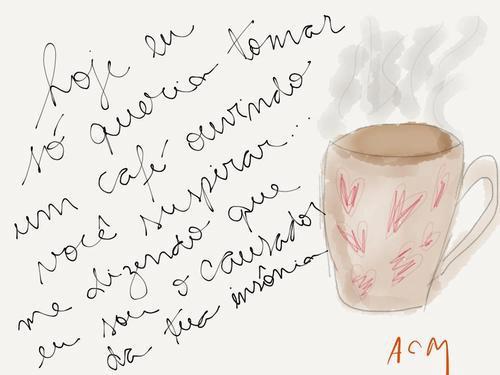 hoje eu
só queria tomar
um café ouvindo
você suspirar...
me dizendo que
eu sou o causador
da tua insônia
ACM